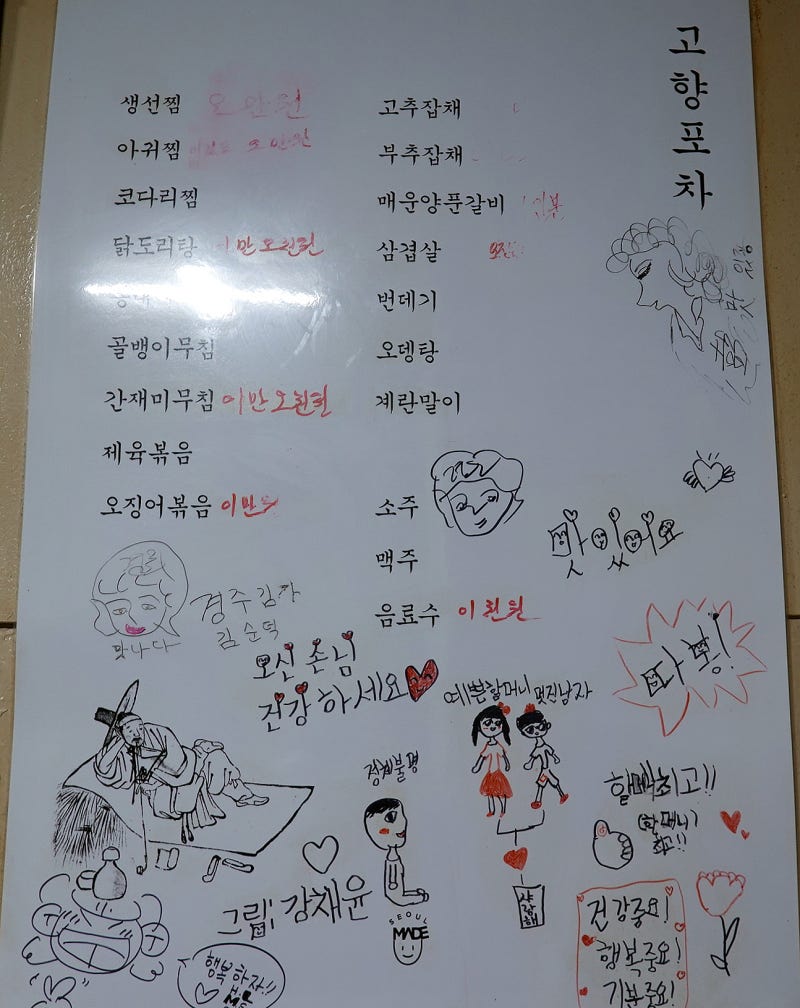 고향포차
생선찜 오만원
아귀찜 오만원
코다리찜
닭도리탕 이만오천원
골뱅이무침
간재미무침 이만오천원
제육볶음
오징어볶음 이만
고추잡채
부추잡채
매운양푼갈비
삼겹살
번데기
오뎅탕
계란말이
소주
맥주
음료수 이천원
맛있어요
맛나다
경주김가
김순덕
오신 손님
건강하세요
예쁜할머니 멋진남자
따봉!
정체불명
할매최고!!
(할머니)
최고!!
사랑해
그림; 강채윤
SEOUL
MADE
행복하자!!
건강중요!
행복중요!
기분중요!